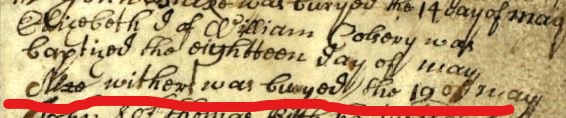 was buryed the 14 day of may
Elizebeth d of William Cobery was
baptized the eightteen day of may
withers was buryed the 19 of may
of thomas